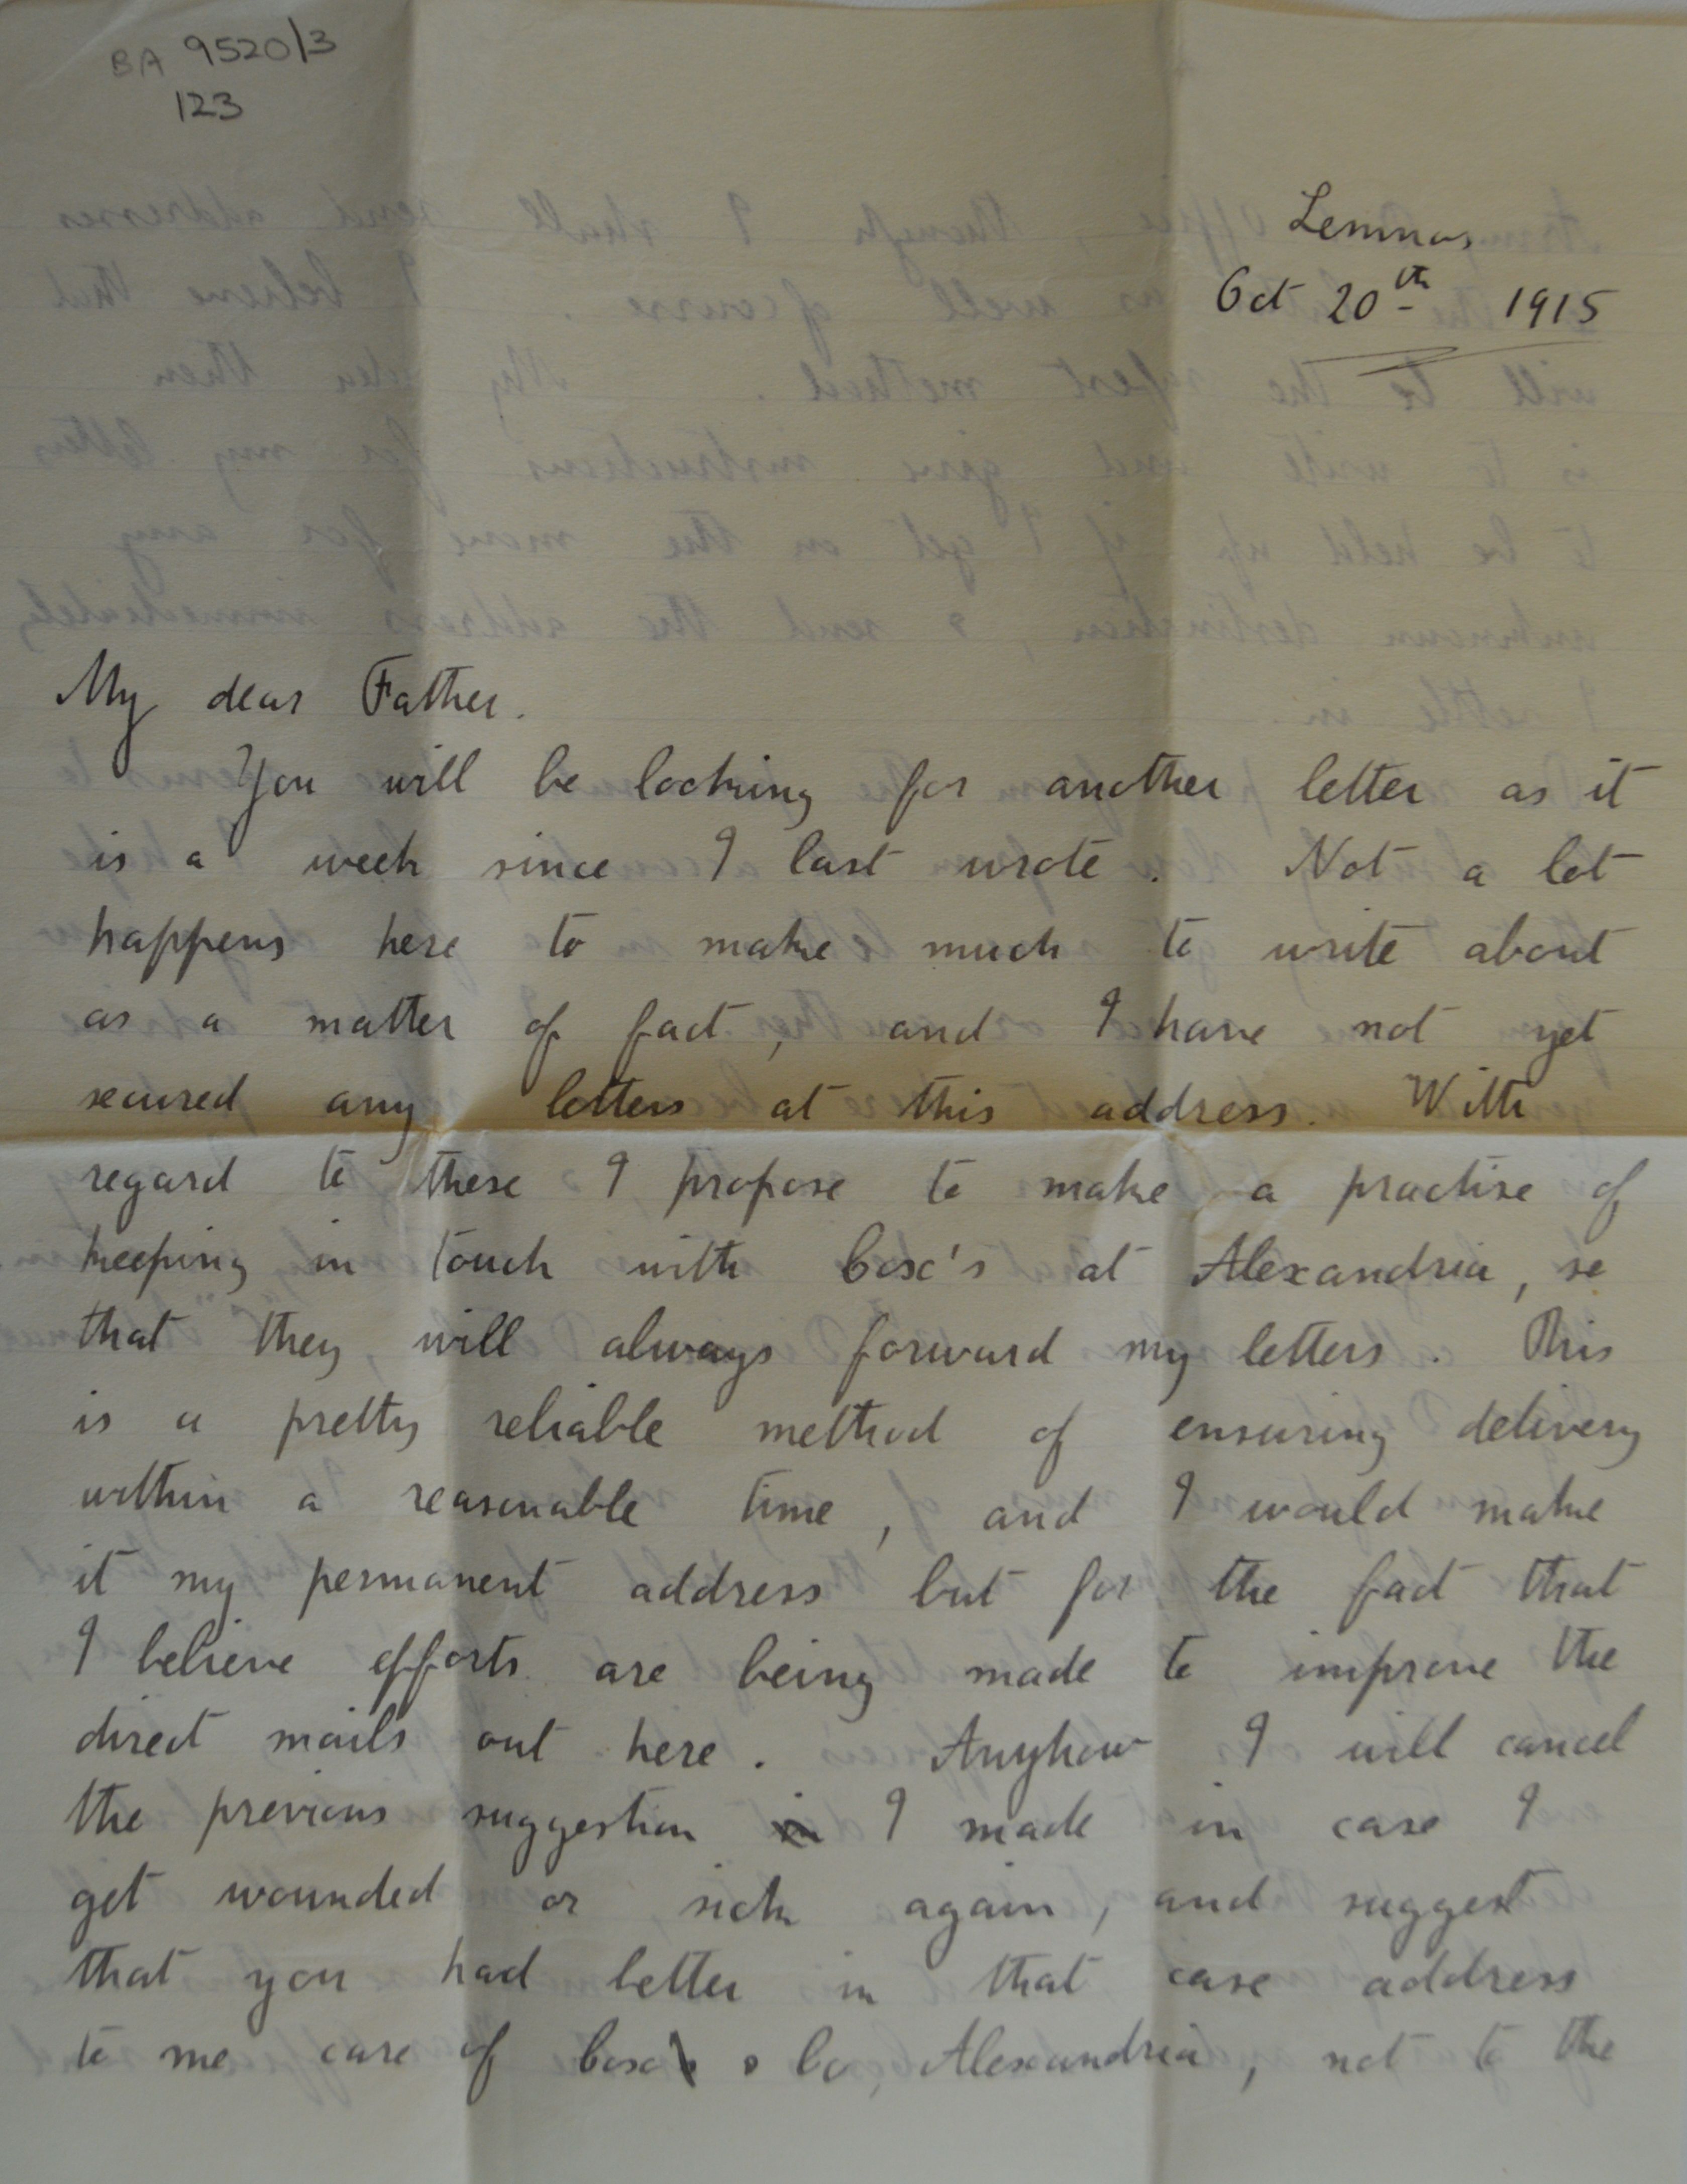 BA 9520/3
123
Lemnos
Oct 20th 1915
My dear Father.
You will be looking for another letter as it
is a week since I last wrote. Not a lot
happens here to make much to write about
as a matter of fact, and I have not yet
secured any letters at this address. With
regard to these I propose to make a practise of
keeping in touch with Cox's at Alexandria, so
that they will always forward my letters. This
is a pretty reliable method of ensuring delivery
within a reasonable time, and I would make
it my permanent address but for the fact that
I believe efforts are being made to improve the
direct mails out here. Anyhow I will cancel
the previous suggestion I made in case I
get wounded or sick again, and suggest
that you had better in that case address
to me care of Cox & Co, Alexandria, not to the